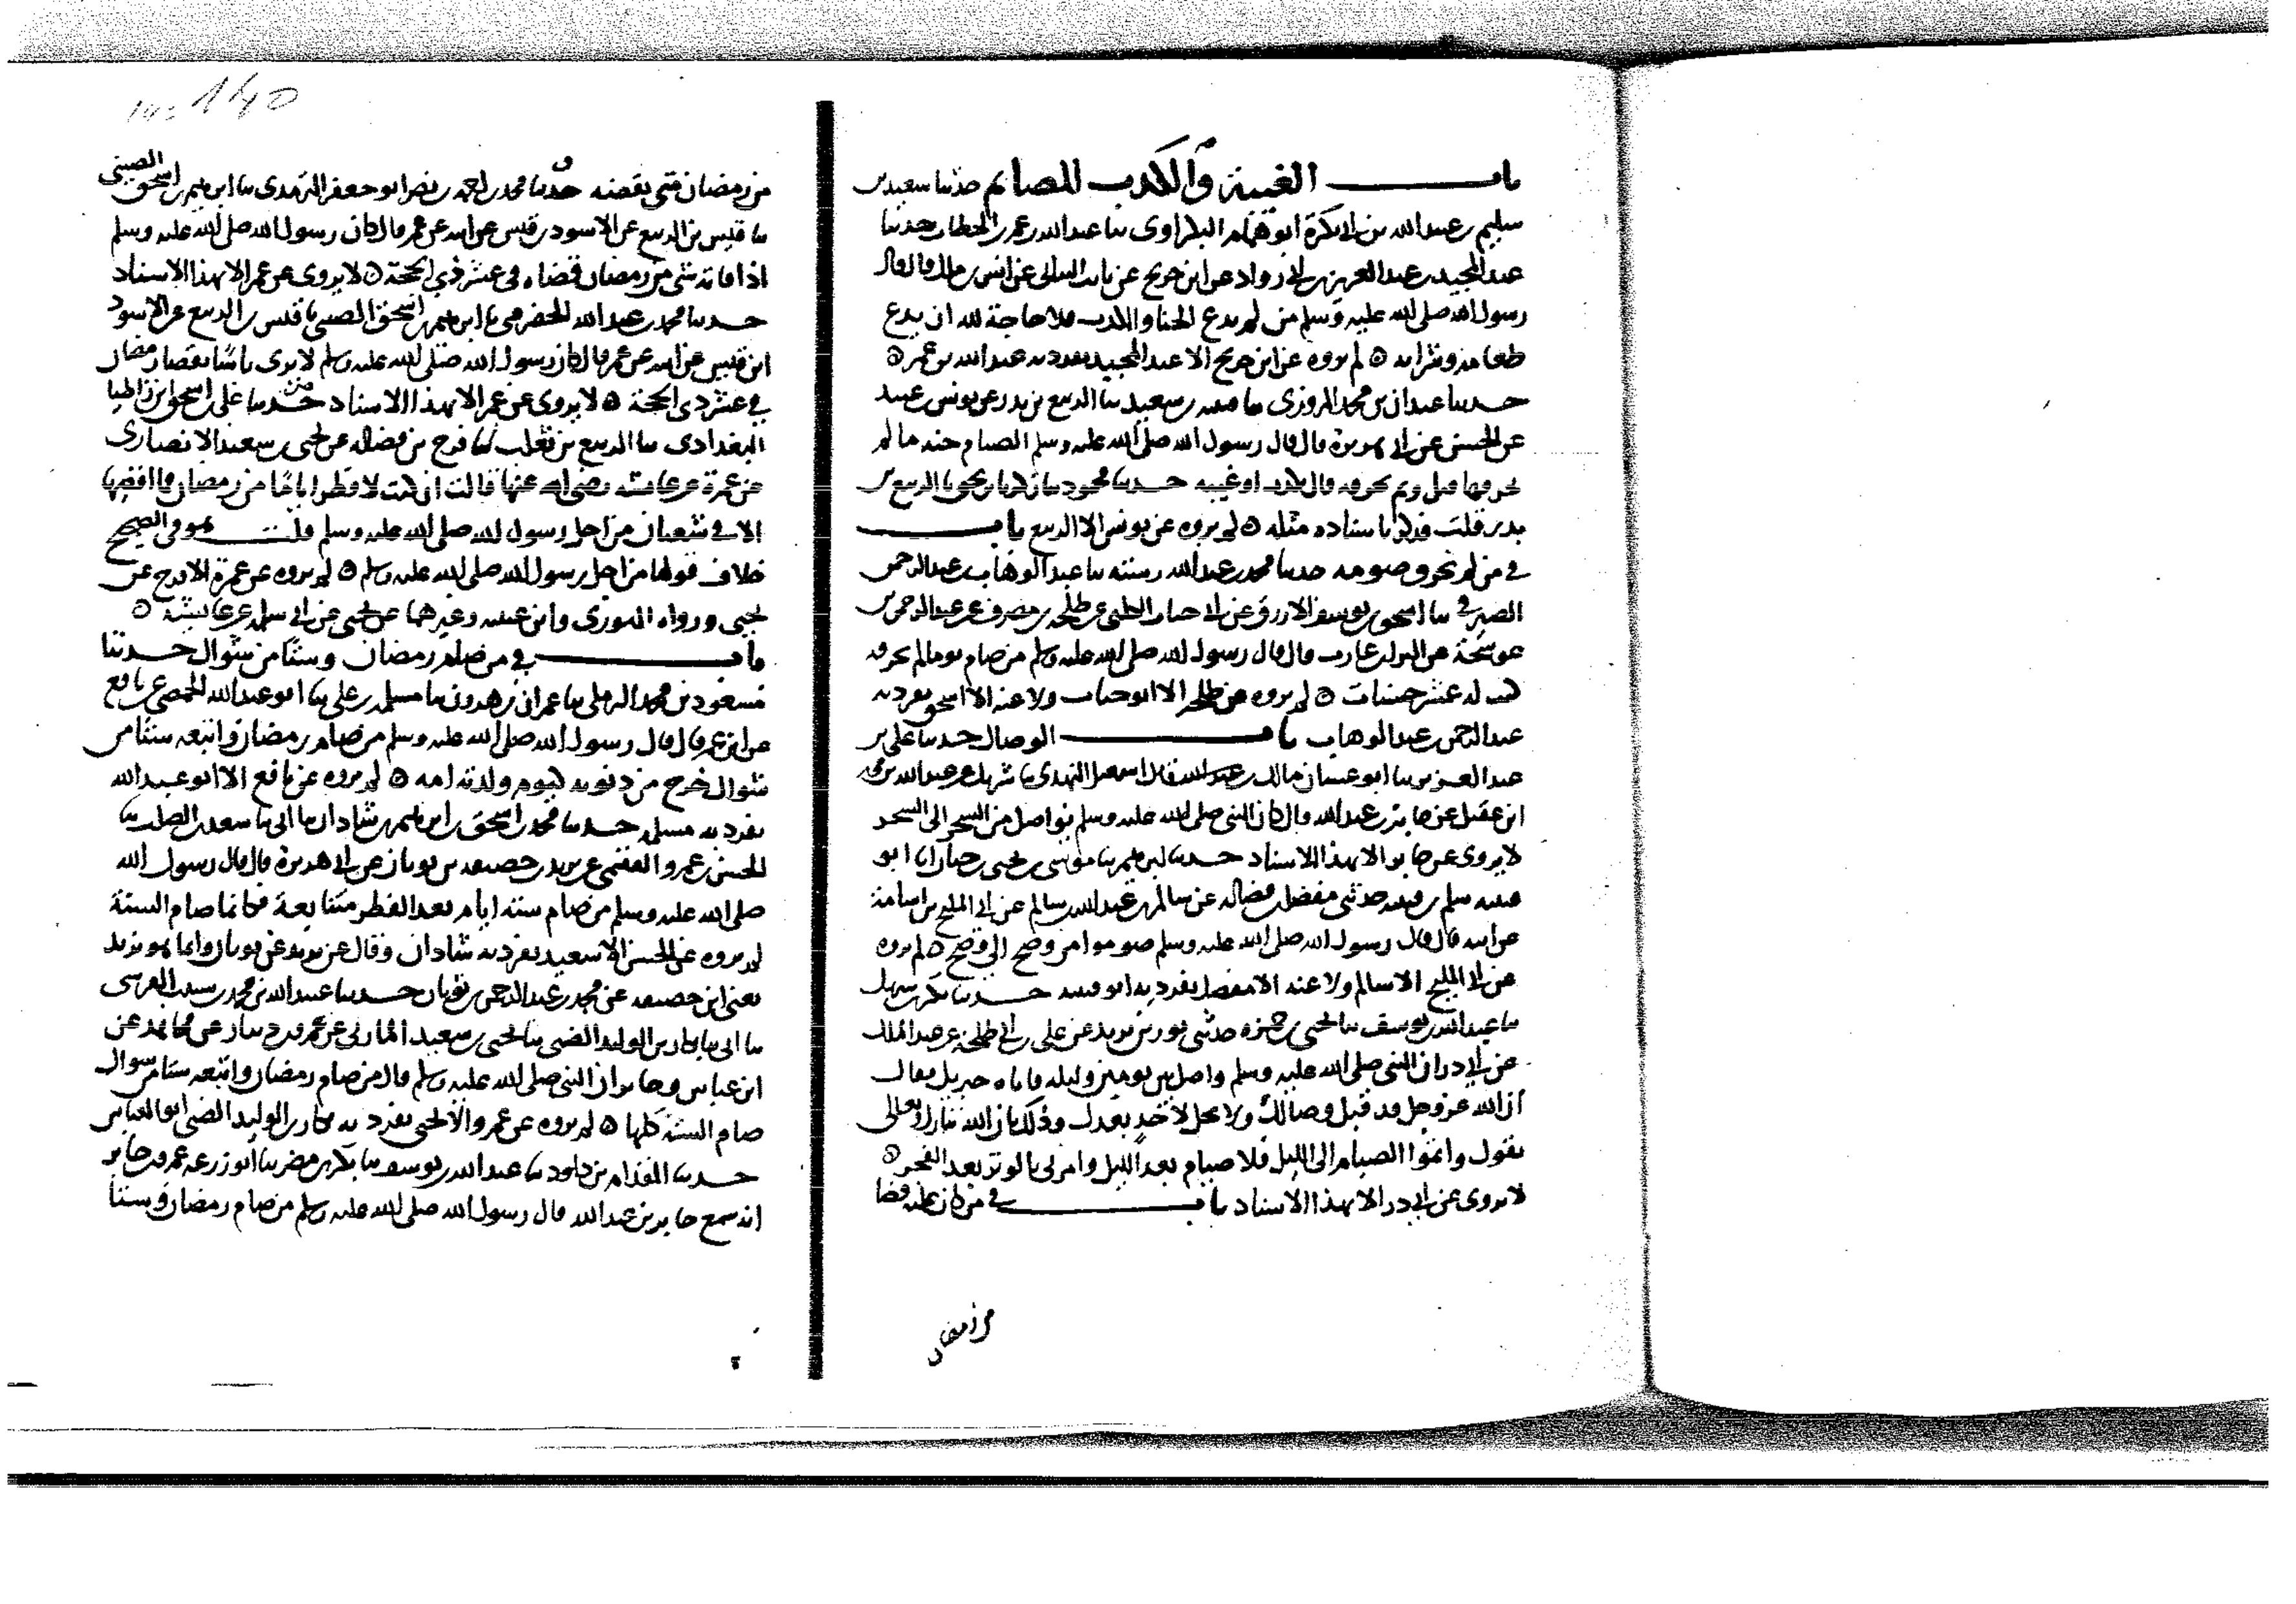 باب الغيبة والكذب للصائم حدثنا سعيد بن
سليم بن عبد الله بن ابي بكرة ابو همام البكراوي ثنا عبد الله بن عمر الخطابي حدثنا
عبد المجيد بن عبد العزيز بن ابي رواد عن ابن جريج عن ثابت البناني عن انس بن مالك قال قال
رسول الله صلى الله عليه وسلم من لم يدع الخنا والكذب فلا حاجة لله ان يدع
طعامه وشرابه ۞ لم يروه عن ابن جريج الا عبد المجيد تفرد به عبد الله بن عمر ۞
حدثنا عبدان بن محمد المروزي ثنا قتيبة بن سعيد ثنا الربيع بن بدر عن يونس بن عبيد
عن الحسن عن ابي هريرة قال قال رسول الله صلى الله عليه وسلم الصيام جنة ما لم
يخرقها قيل وبم يخرقه قال بكذب او غيبة حدثنا محمود ثنا زكريا بن يحيى ثنا الربيع بن
بدر قلت فذكر باسناده مثله ۞ لم يروه عن يونس الا الربيع باب
في من لم يخرق صومه حدثنا محمد بن عبد الله رسته ثنا عبد الوهاب بن عبد الرحمن
الصيرفي ثنا اسحق بن يوسف الازرق عن ابي جناب الكلبي عن طلحة بن مصرف عن عبد الرحمن بن
عوسجة عن البراء بن عازب قال قال رسول الله صلى الله عليه وسلم من صام يوما لم يخرقه
كتب له عشر حسنات ۞ لم يروه عن طلحة الا ابو جناب ولا عنه الا اسحق تفرد به
عبد الرحمن بن عبد الوهاب باب الوصال حدثنا علي بن
عبد العزيز ثنا ابو غسان مالك بن اسمعيل النهدي ثنا شريك عن عبد الله بن محمد
ابن عقيل عن جابر بن عبد الله قال كان النبي صلى الله عليه وسلم يواصل من السحر الى السحر
لا يروى عن جابر الا بهذا الاسناد حدثنا ابراهيم ثنا موسى بن يحيى بن حيان ثنا ابو
قتيبة سلم بن قتيبة حدثني مفضل بن فضالة عن سالم بن عبد الله بن سالم عن ابي المليح بن اسامة
عن ابيه قال قال رسول الله صلى الله عليه وسلم صوموا من وضح الى وضح ۞ لم يروه
عن ابي المليح الا سالم ولا عنه الا مفضل تفرد به ابو قتيبة حدثنا بكر بن سهل
ثنا عبد الله بن يوسف ثنا يحيى بن حمزة حدثني ثور بن يزيد عن علي بن ابي طلحة عن عبد الملك
عن ابي ذر ان النبي صلى الله عليه وسلم واصل بين يومين وليلة فاتاه جبريل فقال
ان الله عز وجل قد قبل وصالك ولا يحل لاحد بعدك وذلك بان الله تبارك وتعالى
يقول واتموا الصيام الى الليل فلا صيام بعد الليل وامرني بالوتر بعد الفجر ۞
لا يروى عن ابي ذر الا بهذا الاسناد باب في من كان عليه قضا
من رمضان
140
من رمضان متى يقضيه حدثنا محمد بن احمد بن نصر ابو جعفر الترمذي ثنا ابراهيم بن اسحق الصيني
ثنا قيس بن الربيع عن الاسود بن قيس عن ابيه عن عمر قال كان رسول الله صلى الله عليه وسلم
اذا فاته شي من رمضان قضاه في عشر ذي الحجة ۞ لا يروى عن عمر الا بهذا الاسناد
حدثنا محمد بن عبد الله الحضرمي ثنا ابراهيم بن اسحق الصيني ثنا قيس بن الربيع عن الاسود
ابن قيس عن ابيه عن عمر قال كان رسول الله صلى الله عليه وسلم لا يرى باسا بقضا رمضان
في عشر ذي الحجة ۞ لا يروى عن عمر الا بهذا الاسناد حدثنا علي بن اسحق بن زاطيا
البغدادي ثنا الربيع بن ثعلب ثنا فرج بن فضالة عن يحيى بن سعيد الانصاري
عن عمرة عن عائشة رضي الله عنها قالت ان كنت لافطر اياما من رمضان فما اقضيها
الا في شعبان من اجل رسول الله صلى الله عليه وسلم قلت هو في الصحيح
خلاف قولها من اجل رسول الله صلى الله عليه وسلم ۞ لم يروه عن عمرة الا فرج عن
يحيى ورواه الثوري وابن عيينة وغيرهما عن يحيى عن ابي سلمة عن عائشة ۞
باب في من صام رمضان وستا من شوال حدثنا
مسعود بن محمد الرملي ثنا عمران بن هرون ثنا مسلمة بن علي ثنا ابو عبد الله الحمصي عن نافع
عن ابن عمر قال قال رسول الله صلى الله عليه وسلم من صام رمضان واتبعه ستا من
شوال خرج من ذنوبه كيوم ولدته امه ۞ لم يروه عن نافع الا ابو عبد الله
تفرد به مسلمة حدثنا محمد بن اسحق بن ابراهيم شاذان ثنا ابي ثنا سعد بن الصلت ثنا
الحسن بن عمرو الفقيمي عن يزيد بن خصيفة عن ثوبان عن ابي هريرة قال قال رسول الله
صلى الله عليه وسلم من صام ستة ايام بعد الفطر متتابعة فكانما صام السنة
لم يروه عن الحسن الا سعيد تفرد به شاذان وقال عن يزيد عن ثوبان وانما هو يزيد
يعني ابن خصيفة عن محمد بن عبد الرحمن بن ثوبان حدثنا عبد الله بن محمد بن
ثنا ابي ثنا بكار بن الوليد الضبي ثنا يحيى بن سعيد المازني عن عمرو بن دينار عن مجاهد عن
ابن عباس وجابر ان النبي صلى الله عليه وسلم قال من صام رمضان واتبعه ستا من شوال
صام السنة كلها ۞ لم يروه عن عمرو الا يحيى تفرد به بكار بن الوليد الضبي ابو العباس
حدثنا المقدام بن داود ثنا عبد الله بن يوسف ثنا بكر بن مضر ثنا ابو زرعة عمرو بن جابر
انه سمع جابر بن عبد الله قال رسول الله صلى الله عليه وسلم من صام رمضان وستا